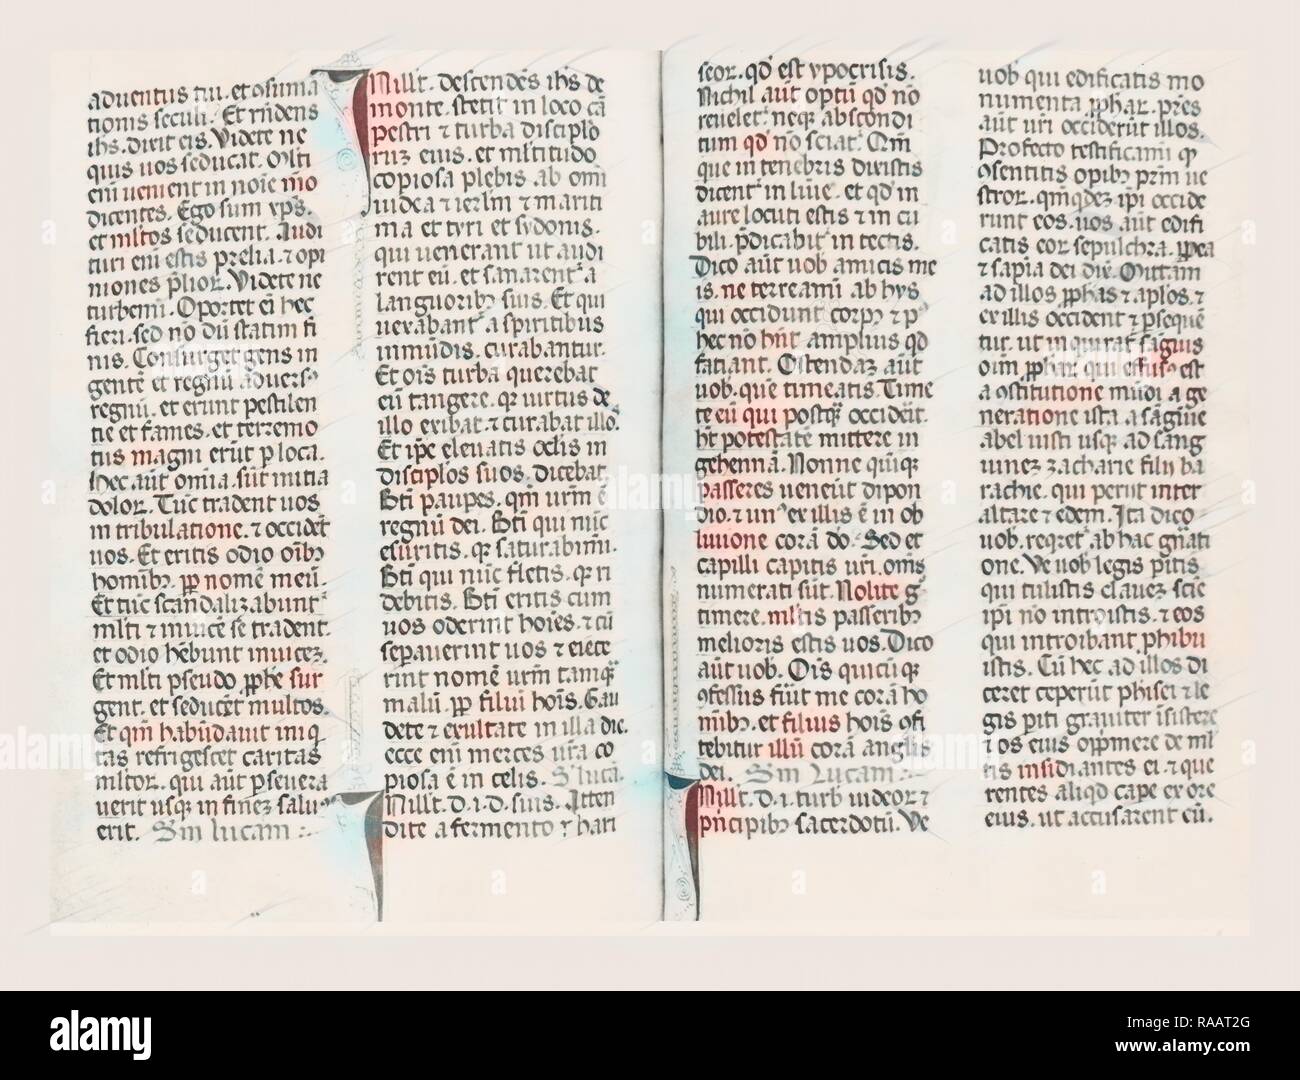 aduentus tui. et ɔsumā
tionis seculi. Et rñdens
ihs. dixit eis. Videte ne
quis uos seducat. Mlti
eni᷒ uenient in noīe meo
dicentes. Ego sum xp̄s.
et mltos seducent. Audi
turi enī estis prelia. ⁊ opi
niones p̄lior. Videte ne
turbemī. Oportet eī hec
fieri. sed nō dū statim fi
nis. Consurget gens in
gentē et regnū aduersꝰ
regnū. et erunt pestilen
tie et fames. et terremo
tus magni erūt ꝑ loca.
Hec aūt omīa. sūt initia
dolorꝝ. Tūc tradent uos
in tribulatione. ⁊ occidēt
uos. Et eritis odio oībꝫ
homībꝫ. ꝓp nomē meū.
Et tūc scandalizabuntᷣ
mlti ⁊ inuicē se tradent.
et odio hēbunt inuicez.
Et mlti pseudo ꝓphe sur
gent. et seducēt multos.
Et qm̄ habūdauit iniq
tas refrigescet caritas
mltorꝝ. qui aūt ꝑseuera
uerit usqꝫ in finez saluꝰ
erit. Sm lucam
In illˀt. descendēs ihs de
monte. stetit in loco cā
pestri ⁊ turba disciplo
rūz eius. et mltitudo
copiosa plebis ab omī
iudea ⁊ ierlm ⁊ mariti
ma et tyri et sydonis.
qui venerant ut audi
rent eū. et sanarentᷣ a
languoribꝫ suis. Et qui
uexabantᷣ a spiritibus
inmūdis. curabantur.
Et oīs turba querebat
eū tangere. qr uirtus de
illo exibat ⁊ curabat illo.
Et ipē eleuatis oclis in
disciplos suos. dicebat
Bti paupes. qm̄ urm̄ ē
regnū dei. Bti qui nūc
esuritis. qr saturabimī.
Bti qui nūc fletis. qr ri
debitis. Bti eritis cum
uos oderint hoīes. ⁊ cū
sepauerint uos ⁊ eiece
rint nomē urm̄ tamqꝫ
malū. ꝓp filiū hoīs. Gau
dete ⁊ exultate in illa die.
ecce enī merces ura co
piosa ē in celis. S. lucā.
In illˀt. d. i. d. suis. Atten
dite a fermento ⁊ hari
seor. qd̄ est ypocrisis.
Nichil aūt optū qd̄ nō
reueletᷣ. neqꝫ abscondi
tum qd̄ nō sciatᷣ. Qm̄
que in tenebris dixistis
dicentᷣ in luīe. et qd̄ in
aure locuti estis ⁊ in cu
bili. p̄dicabitᷣ in tectis.
Dico aūt uob amicis me
is. ne terreamī ab hys
qui occidunt corpꝰ ⁊ pꝰ
hec nō hn̄t amplius qd̄
fatiant. Ostendaz aūt
uob. que timeatis. Time
te eū qui postqꝫ occidēit.
ht potestatē mittere in
gehennā. Nonne quīqꝫ
passeres ueneūt dipon
dio. ⁊ unꝰ ex illis ē in ob
liuione corā do. Sed et
capilli capitis uri. oms
numerati sūt. Nolite gͦ
timere. mltis passeribꝫ
melioris estis uos. Dico
aūt uob. Oīs quicūqꝫ
ɔfessus fūit me corā ho
mībꝫ. et filius hoīs ɔfi
tebitur illū corā anglis
dei. Sm Lucam
In illˀt. d. i. turb iudeorꝝ ⁊
p̄ncipibꝫ sacerdotū. Ve
uob qui edificatis mo
numenta ꝓphar. pr̄es
aūt uri occiderūt illos.
Profecto testificamī qꝫ
ɔsentitis opibꝫ prm̄ ue
stror. qm̄qdez ip̄i occide
runt eos. uos aūt edifi
catis eor sepulchra. ꝓpea
⁊ sapīa dei dix̄. Mittam
ad illos ꝓphas ⁊ aplos. ⁊
ex illis occident ⁊ ꝑsequē
tur. ut inquiratᷣ sāguis
oīm ꝓphar qui effusꝰ est
a ɔstitutione mūdi a ge
neratione ista. a sāguīe
abel iusti usqꝫ ad sang
uinez zacharie filij ba
rachie. qui perijt inter
altare ⁊ edem. Ita dico
uob. reqretᷣ ab hac gn̄ati
one. Ve uob legis pitis
qui tulistis clauez sciē
ip̄i nō introistis. ⁊ eos
qui introibant phibu
istis. Cū hec ad illos di
ceret ceperūt phisei ⁊ le
gis piti grauiter īsistere
⁊ os eius opp̄mere de ml
tis insidiantes ei. ⁊ que
rentes aliqd cape ex ore
eius. ut accusarent eū.
alamy
Image ID: RAAT2G
www.alamy.com